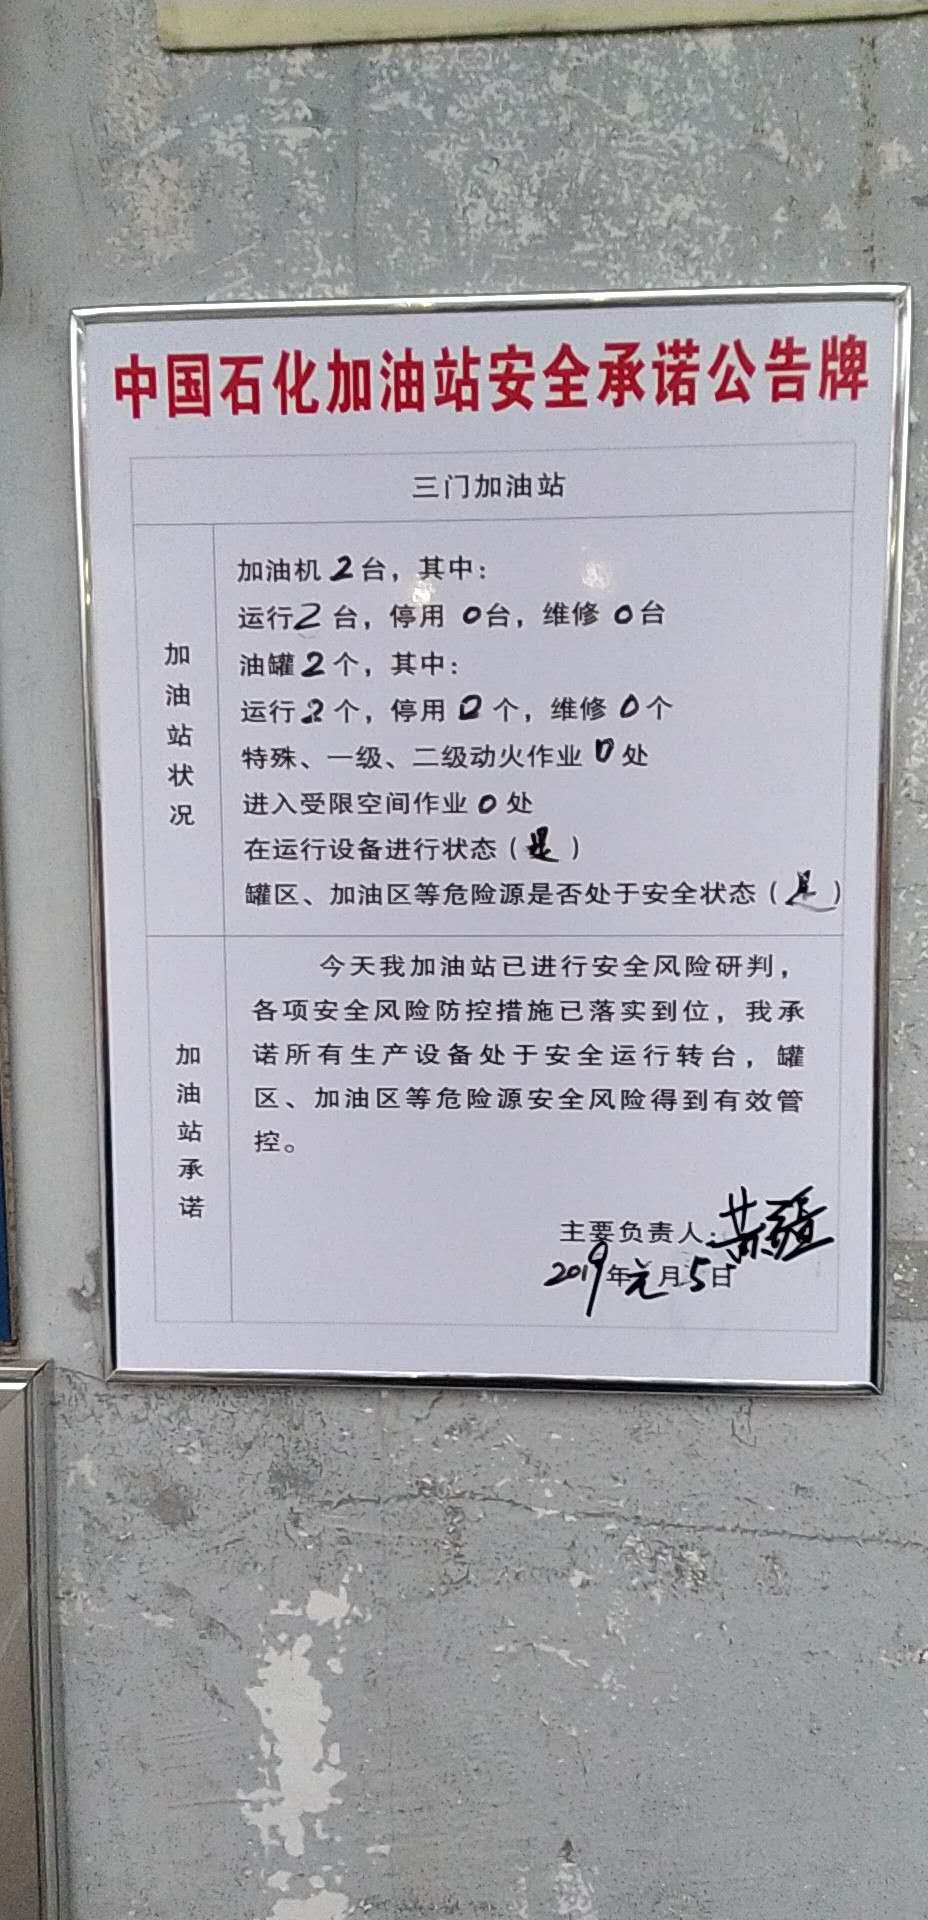 中国石化加油站安全承诺公告牌
三门加油站
加油站状况
加油机2台，其中：
运行2台，停用0台，维修0台
油罐2个，其中：
运行2个，停用0个，维修0个
特殊、一级、二级动火作业0处
进入受限空间作业0处
在运行设备进行状态（是）
罐区、加油区等危险源是否处于安全状态（是）
加油站承诺
今天我加油站已进行安全风险研判，
各项安全风险防控措施已落实到位，我承
诺所有生产设备处于安全运行转台，罐
区、加油区等危险源安全风险得到有效管
控。
主要负责人：
2019年元月5日